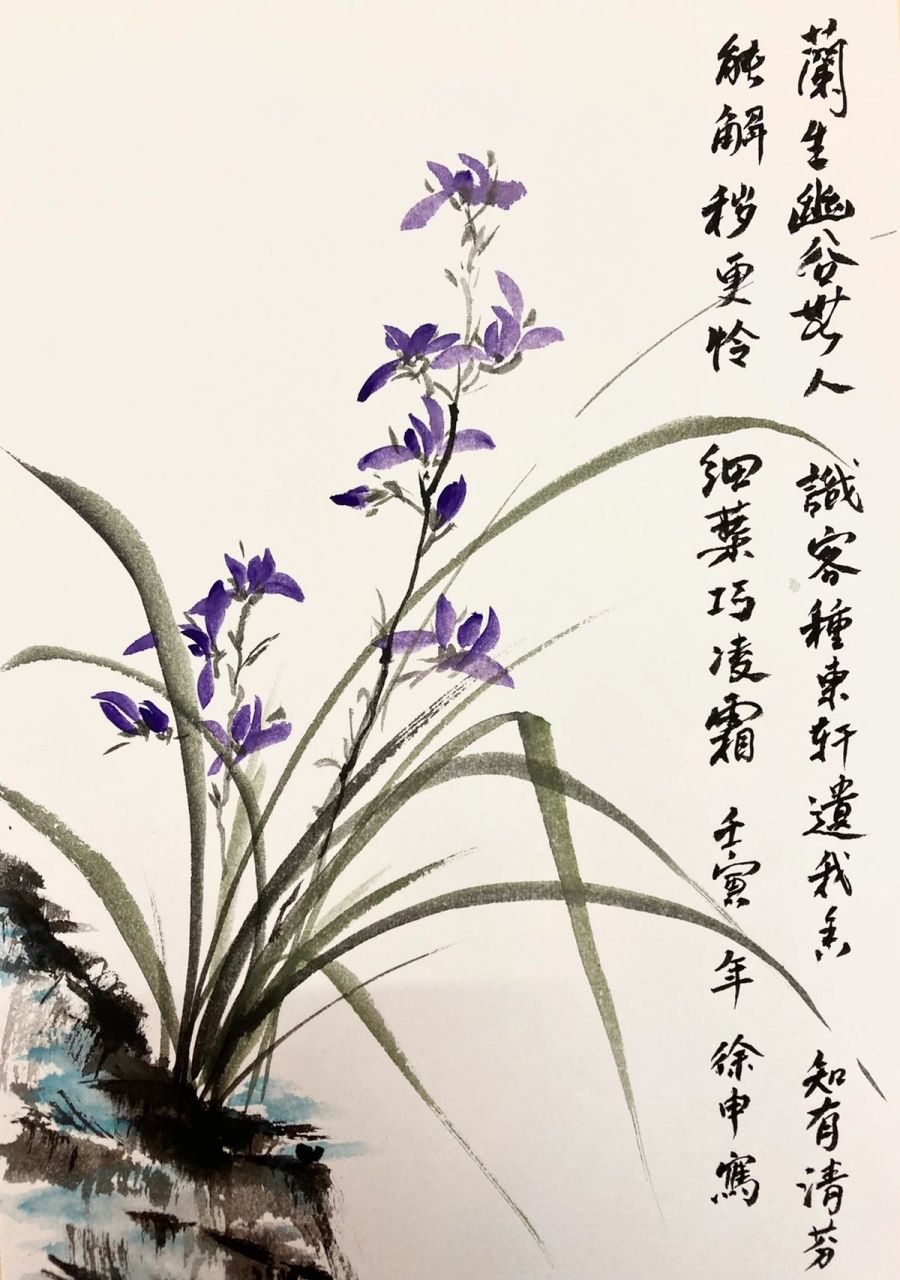 蘭生幽谷無人識客種東軒遺我香知有清芬
能解穢更憐細葉巧凌霜壬寅年徐申寫